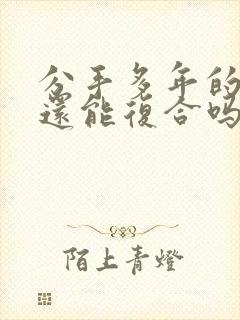 分手多年的
還能復合吗
陌上青燈